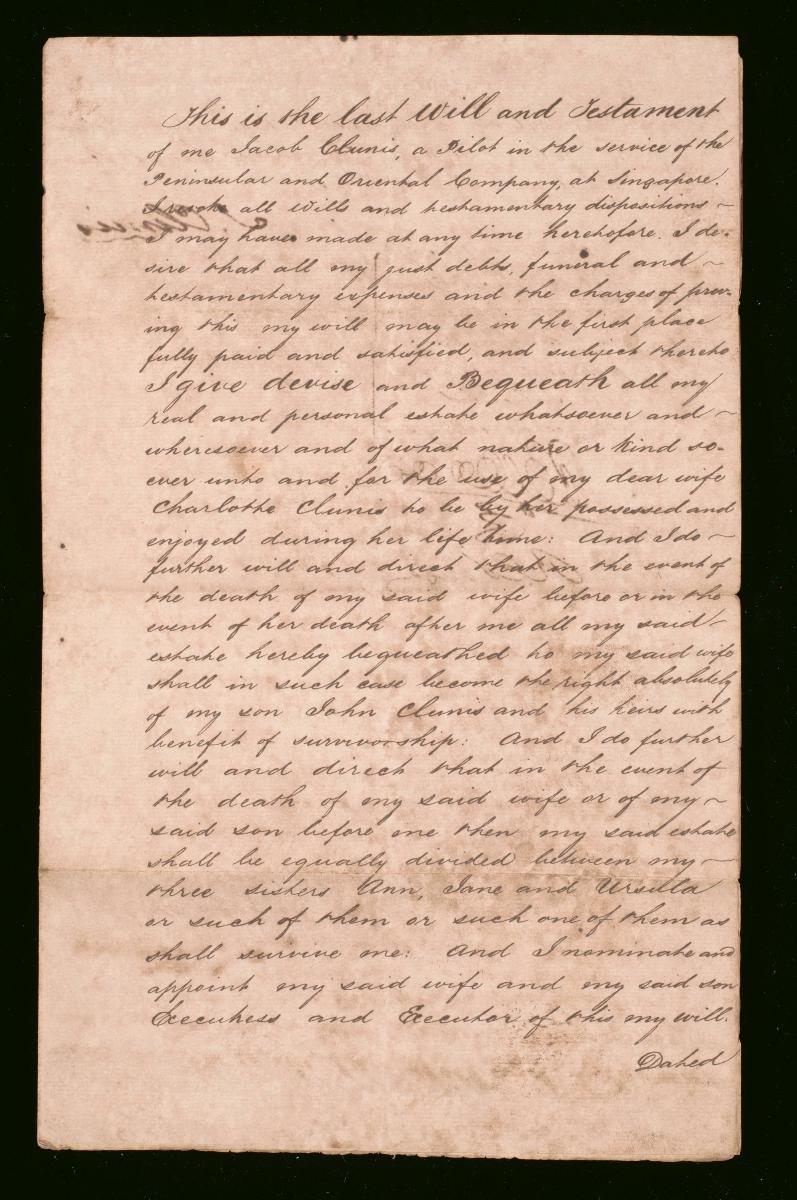 This is the last Will and Testament
of me Jacob Clunis, a Pilot in the service of the
Peninsular and Oriental Company, at Singapore.
I revoke all Wills and testamentary dispositions ~
I may have made at any time heretofore. I de-
sire that all my just debts, funeral and ~
testamentary expenses and the charges of prov-
ing this my will may be in the first place
fully paid and satisfied, and subject thereto
I give devise and Bequeath all my
real and personal estate whatsoever and ~
wheresoever and of what nature or kind so-
ever unto and for the use of my dear wife
Charlotte Clunis to be by her possessed and
enjoyed during her life time: And I do ~
further will and direct that in the event of
the death of my said wife before or in the
event of her death after me all my said ~
estate hereby bequeathed to my said wife
shall in such case become the right absolutely
of my son John Clunis and his heirs with
benefit of survivorship: And I do further
will and direct that in the event of
the death of my said wife or of my ~
said son before me then my said estate
shall be equally divided between my ~
three sisters Ann, Jane and Ursula
or such of them or such one of them as
shall survive me: And I nominate and
appoint my said wife and my said son
Executress and Executor of this my will.
Dated